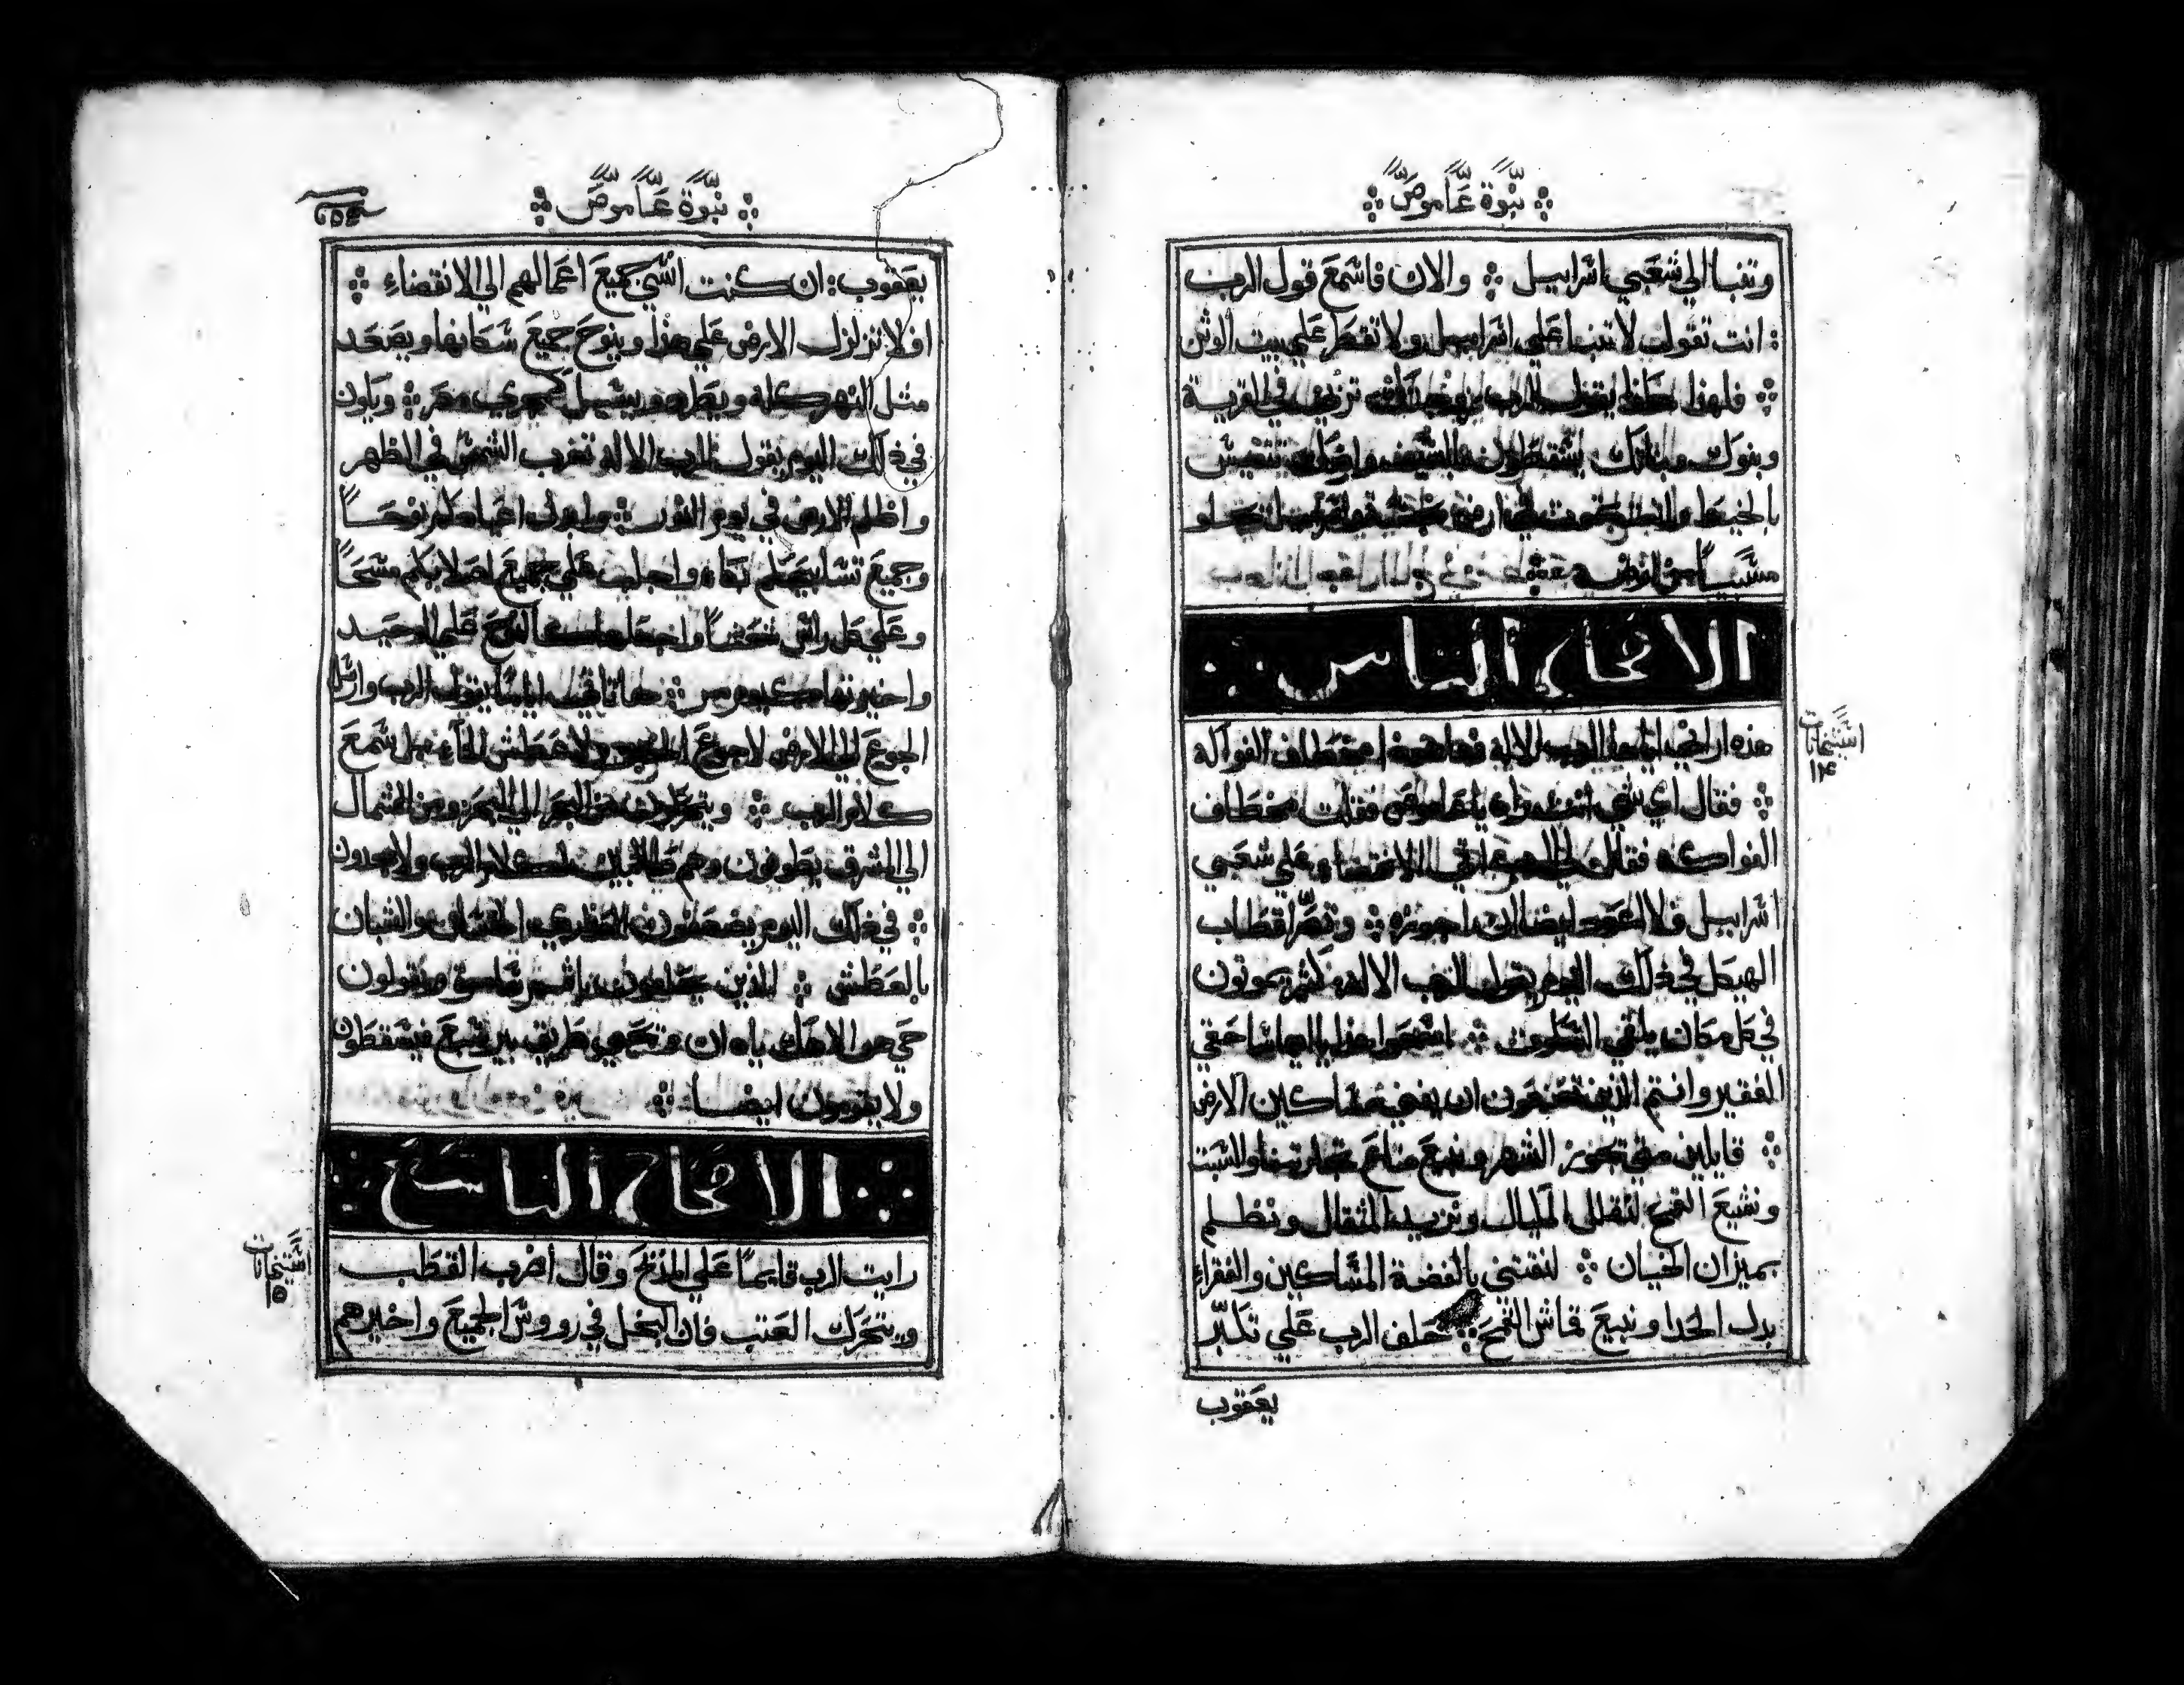 نبوة عاموص
وتنبا الي شعبي اسراييل والان فاسمع قول الرب
انت تقول لا تتنبا علي اسراييل ولا تقطر علي بيت الوثن
فلهذا هكذا يقول الرب تزني في القرية
وبنوك وبناتك يسقطون بالسيف وارضك تنقيس
بالخيط وانت تموت في ارض
مسبياً من ارضه
الاصحاح الثامن
هذه اراني ايضا الرب الاله مخطاف الفواكه
فقال اي شي انت راي يا عاموص فقلت مخطاف
الفواكه فقال لي الرب اتي الانقضاء علي شعبي
اسراييل فلا اعود ايضا ان اجوزه وتصر اقطاب
الهيكل في ذلك اليوم يقول الرب الاله كثير يموتون
في كل مكان يلقي السكوت اسمعوا هذا يا ايها الساحقي
الفقير وانتم الذين تصنعون ان يفني مساكين الارض
قايلين متي تجوز الشهر ونبيع والسبت
ونشيع القمح لنقلل المكيال ونزيد المثقال ونظلم
بميزان الخيان لنقتني بالفضة المساكين والفقراء
بدل الحدا ونبيع قماش القمح حلف الرب علي تكبر
يعقوب
اسبحانات
١٤
نبوة عاموص
يعقوب ان كنت انسي جميع اعمالهم الي الانقضاء
افلا تزلزل الارض علي هذا وينوح جميع سكانها ويصعد
مثل النهر كله ويطرد ويسيل كمجري مصر ويكون
في ذلك اليوم يقول الرب الاله تغرب الشمس في الظهر
واظلم الارض في يوم النور وابدل اعيادكم نوحاً
وجميع تسابيحكم بكاء واجلب علي جميع اصلابكم مسحاً
وعلي كل راس واجعلها كالنوح علي الوحيد
واخيرتها كيوم مر ها تاتي ايامًا يقول الرب وارسل
الجوع الي الارض لا جوع الخبز ولا عطش الماء بل سمع
كلام الرب ويتحركون من البحر الي البحر ومن الشمال
الي الشرق يطوفون وهم طالبين كلام الرب ولا يجدون
في ذلك اليوم يضمحلون العذاري الحسان والشبان
بالعطش الذين يحلفون باثم سامرة ويقولون
حي هو الاهك يا دان وتحيي طريق بير سبع فيسقطون
ولا يقومون ايضا
الاصحاح التاسع
رايت الرب قايماً علي المذبح وقال اضرب القطب
ويتحرك العتب فان البخل في رووس الجميع واخيرهم
اسبحانات
١٥